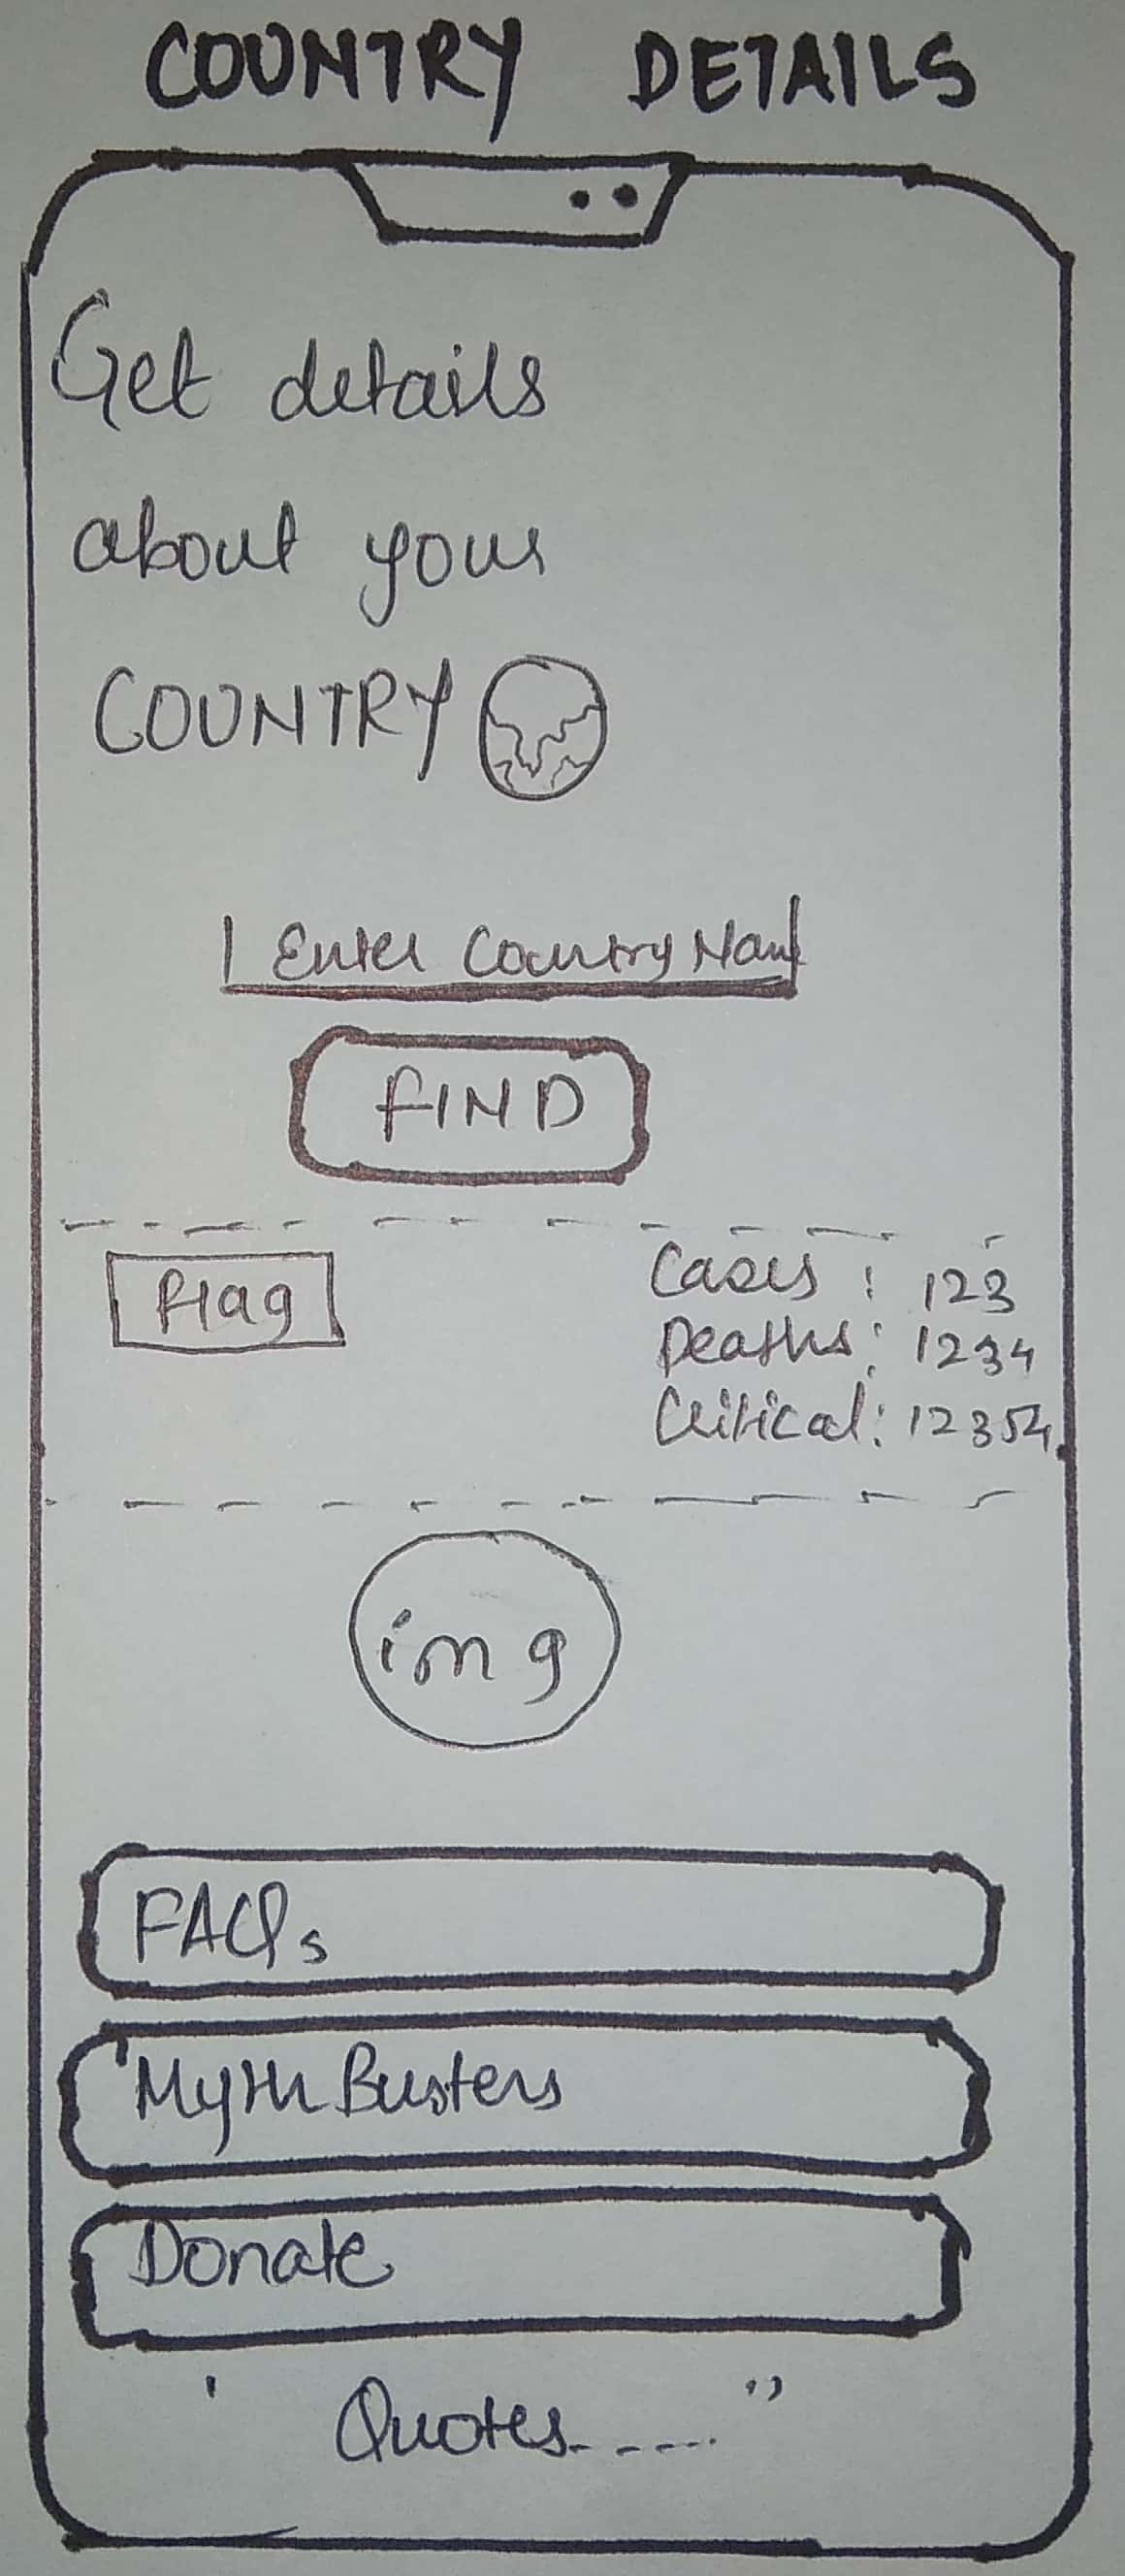 COUNTRY DETAILS
Get details
about your
COUNTRY
Enter Country Name
FIND
Flag
Cases : 123
Deaths : 1234
Critical : 12354
img
FAQs
Myth Busters
Donate
' Quotes..... "